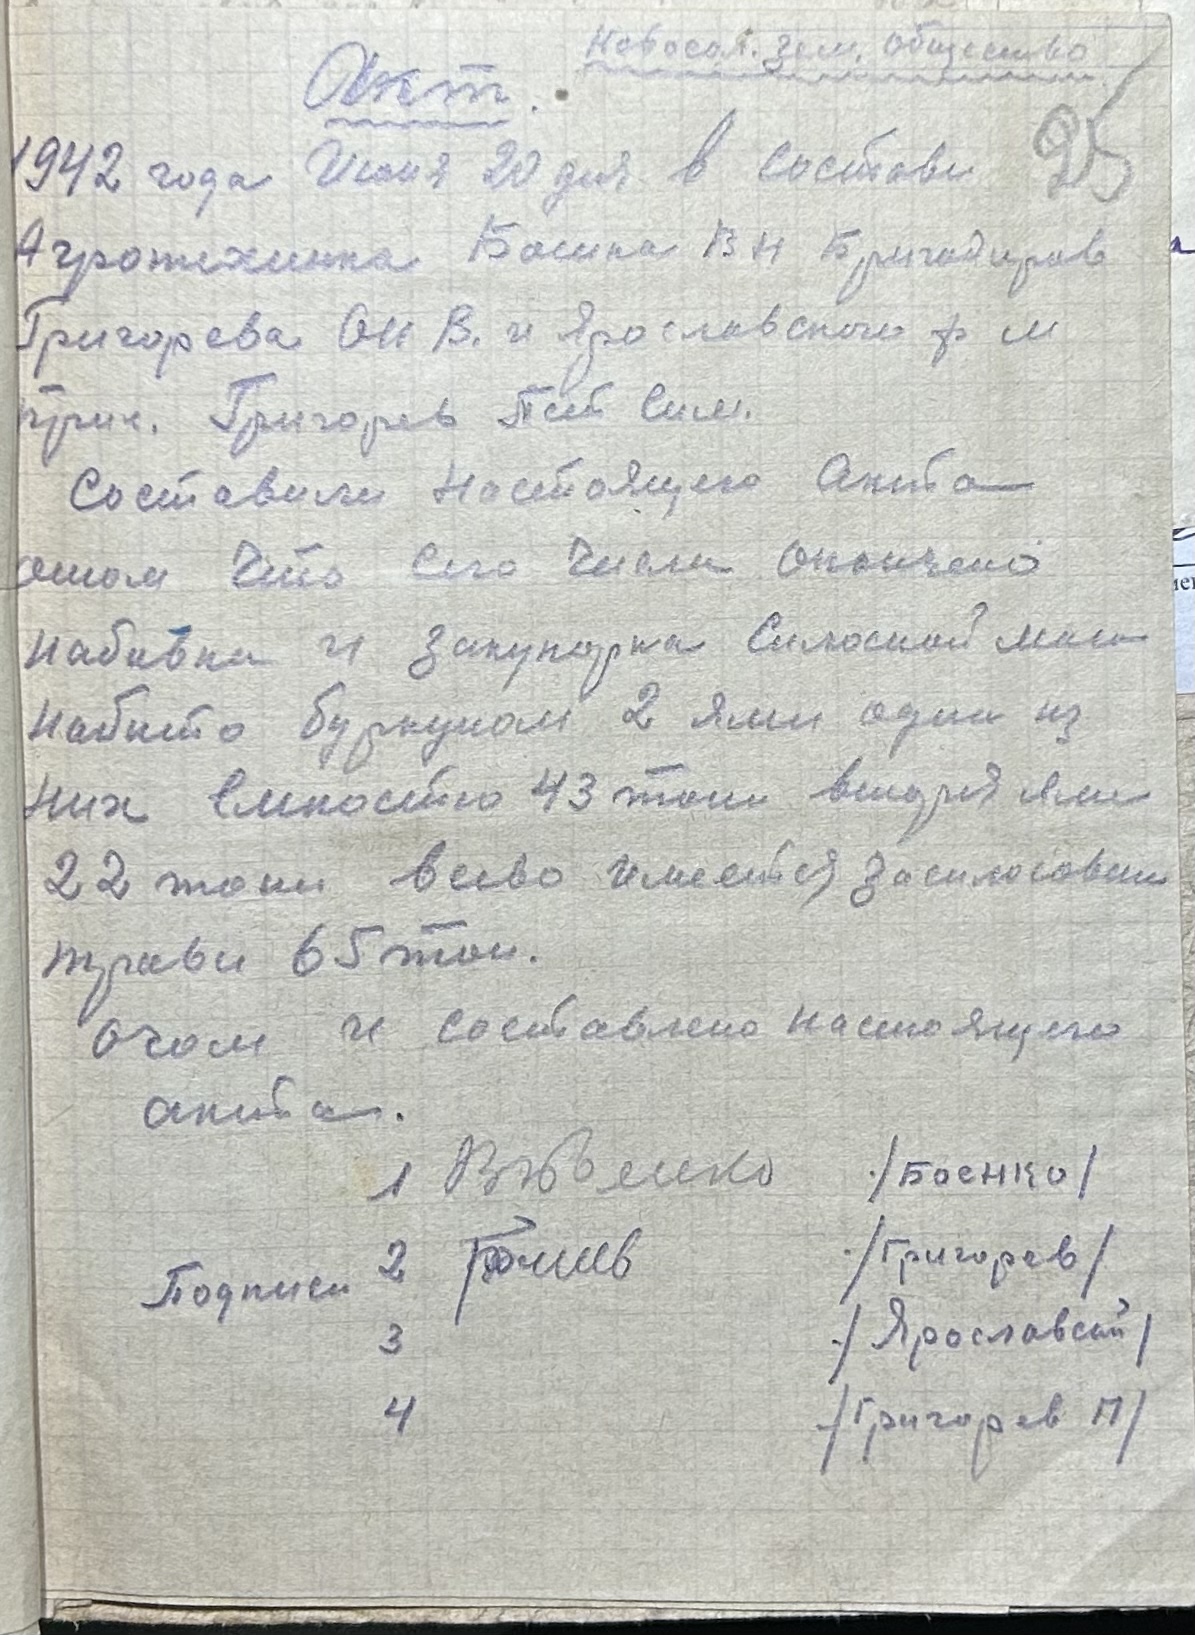 Новосел. Зем. Общество
Акт.
25
1942 года Июня 20 дня в состави
Агротехника Боенка В Н Бригадиров
Григорева Он В. и Ярославского ф м
Григорев Пет Сим.
Составили настоящего Акта
отом что сего числа окончено
набивка и закупорка Силосной
набито буркуном 2 ями один из
них емкостю 43 тони вторая яма
22 тони всево имеется засилосован
трави 65 тон.
Очом и составлено настоящего
акта.
1 /Боенко/
Подписи 2 /Григорев/
3 /Ярославский/
4 /Григорев П/